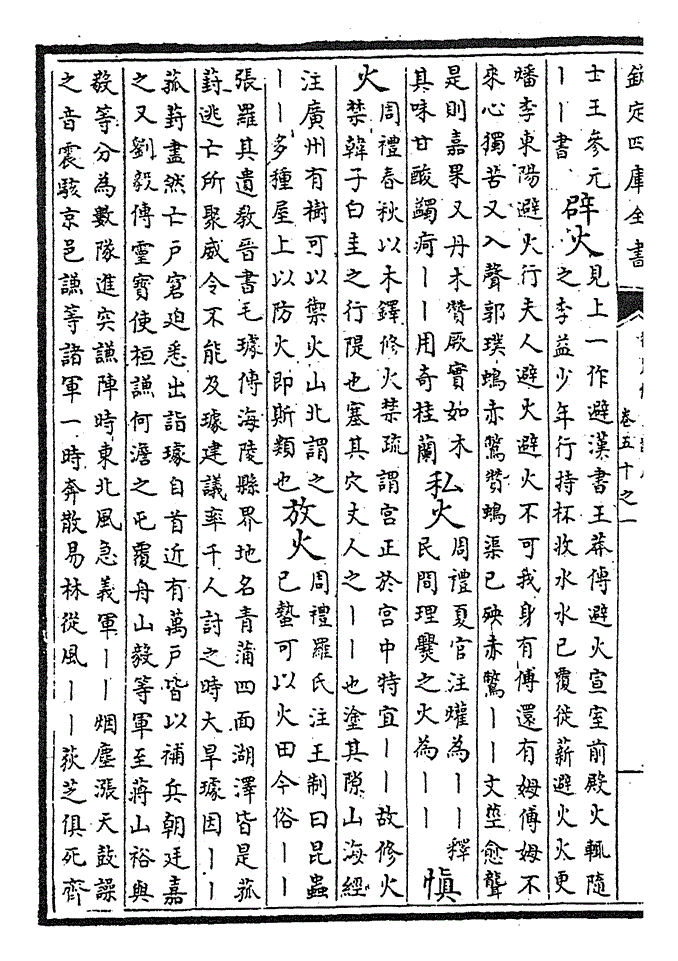 欽定四庫全書
卷五十之一
士王參元
丨丨書
辟火
見上一作避漢書王莽傳避火宣室前殿火輒隨
之李益少年行持杯收水水已覆徙薪避火火更
燔李東陽避火行夫人避火避火不可我身有傅還有姆傅姆不
來心獨苦又入聲郭璞䳋赤鷩贊䳋渠已殃赤鷩丨丨文莖愈聾
是則嘉果又丹木贊厥實如木
其味甘酸蠲痾丨丨用奇桂蘭
私火
周禮夏官注爟為丨丨釋
民間理爨之火為丨丨
慎
火
周禮春秋以木鐸修火禁疏謂宮正於宮中特宜丨丨故修火
禁韓子白圭之行隄也塞其穴丈人之丨丨也塗其隙山海經
注廣州有樹可以禦火山北謂之
丨丨多種屋上以防火即斯類也
放火
周禮羅氏注王制曰昆蟲
已蟄可以火田今俗丨丨
張羅其遺教晉書毛璩傳海陵縣界地名青蒲四面湖澤皆是菰
葑逃亡所聚威令不能及璩建議率千人討之時大旱璩因丨丨
菰葑盡然亡戶窘迫悉出詣璩自首近有萬戶皆以補兵朝廷嘉
之又劉毅傳靈寶使桓謙何澹之屯覆舟山毅等軍至蔣山裕與
毅等分為數隊進突謙陣時東北風急義軍丨丨烟塵漲天鼓譟
之音震駭京邑謙等諸軍一時奔散易林從風丨丨荻芝俱死齊